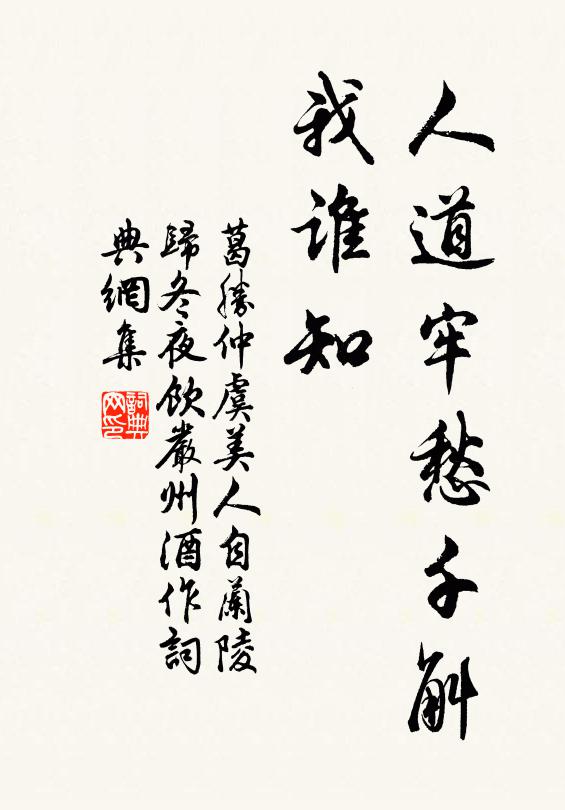 人道牢愁千斛
我誰知
葛勝仲虞美人自蘭陵
歸冬夜飲嚴州酒作詞
典網集
詞典
网印